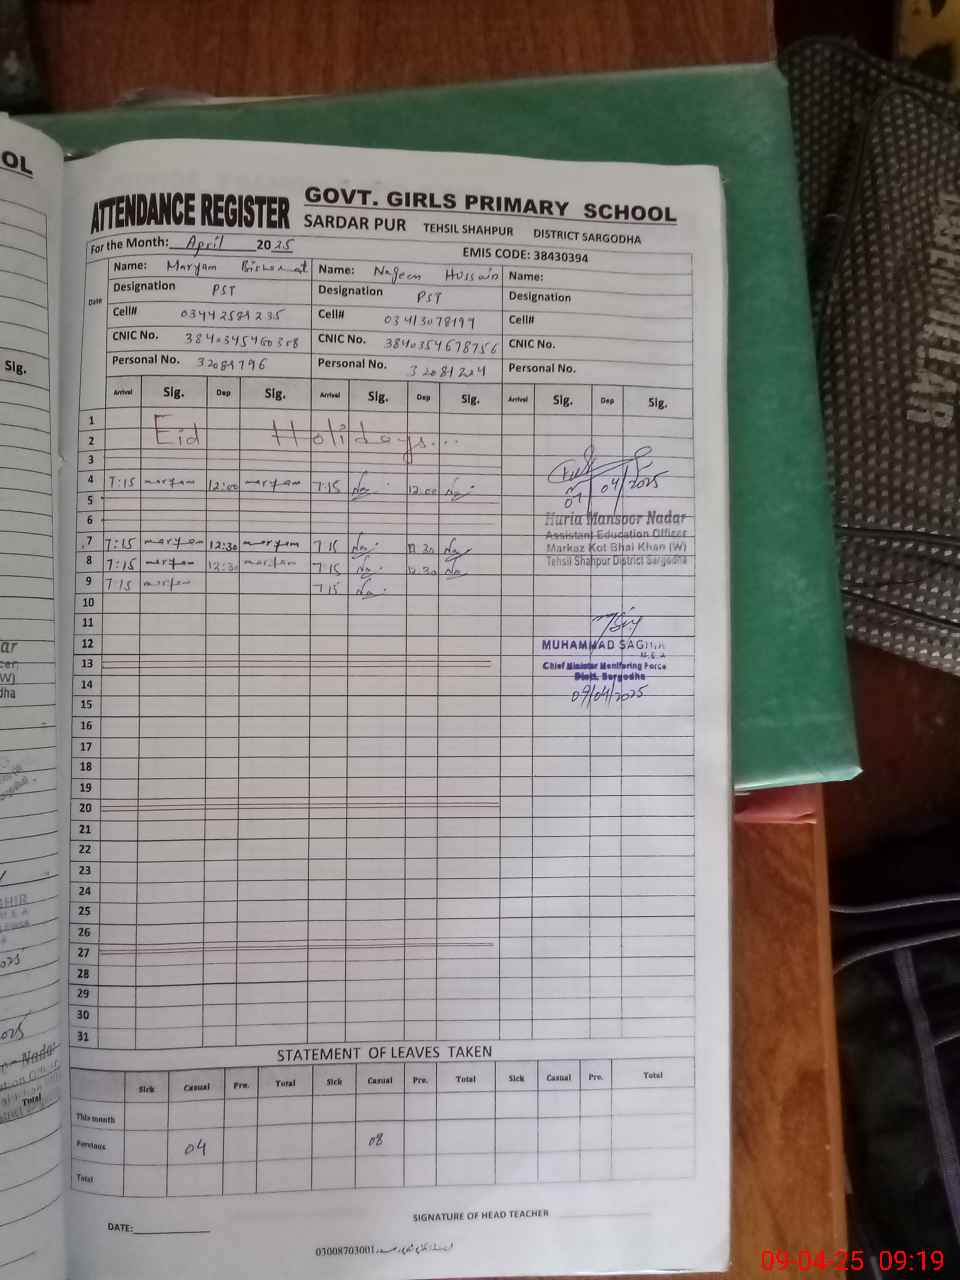 OL
ATTENDANCE REGISTER
GOVT. GIRLS PRIMARY SCHOOL
SARDAR PUR TEHSIL SHAHPUR DISTRICT SARGODHA
For the Month: April 2025 EMIS CODE: 38430394
Date Name: Maryam Name: Nageen Hussain Name:
Designation PST Designation PST Designation
Cell# 03442581235 Cell# 03413078197 Cell#
CNIC No. CNIC No. 3840354678756 CNIC No.
Personal No. 32081796 Personal No. 32081224 Personal No.
Sig.
Arrival Sig. Dep Sig. Arrival Sig. Dep Sig. Arrival Sig. Dep Sig.
1
2 Eid Holidays...
3
4 7:15 maryam 12:00 maryam 7:15 Na 12:00 Na
04/2025
5
6
Huria Mansoor Nadar
Assistant Education Officer
7 7:15 maryam 12:30 maryam 7:15 Na 12:30 Na
Markaz Kot Bhai Khan (W)
Tehsil Shahpur District Sargodha
8 7:15 maryam 12:30 maryam 7:15 Na 12:30 Na
9 7:15 maryam 7:15 Na
10
11
12
MUHAMMAD
M.E.A
13
Chief Minister Monitoring Force
Distt. Sargodha
14
09/04/2025
15
16
17
18
19
20
21
22
23
24
25
26
27
28
29
30
31
STATEMENT OF LEAVES TAKEN
Sick Casual Pre. Total Sick Casual Pre. Total Sick Casual Pre. Total
This month
Previous 04 08
Total
Total
SIGNATURE OF HEAD TEACHER
DATE:
03008703001
09-04-25 09:19